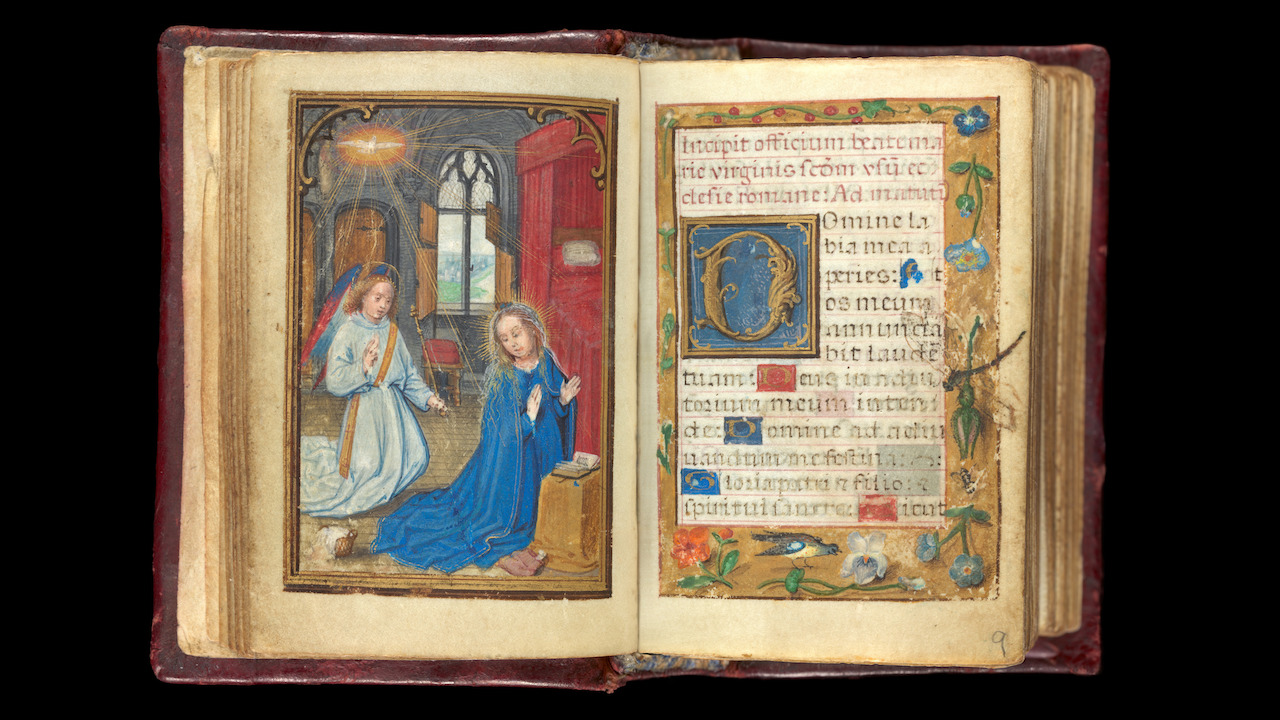 Incipit officium beate ma
rie virginis scdm usū ec
clesie romane: Ad matutī
Domine la
bia mea a
peries: Et
os meum
annuncia
bit laudē
tuam: Deus in adiu
torium meum inten
de: Domine ad adiu
uandum me festina:
Gloria patri & filio: &
spiritui sancto: Sicut
9